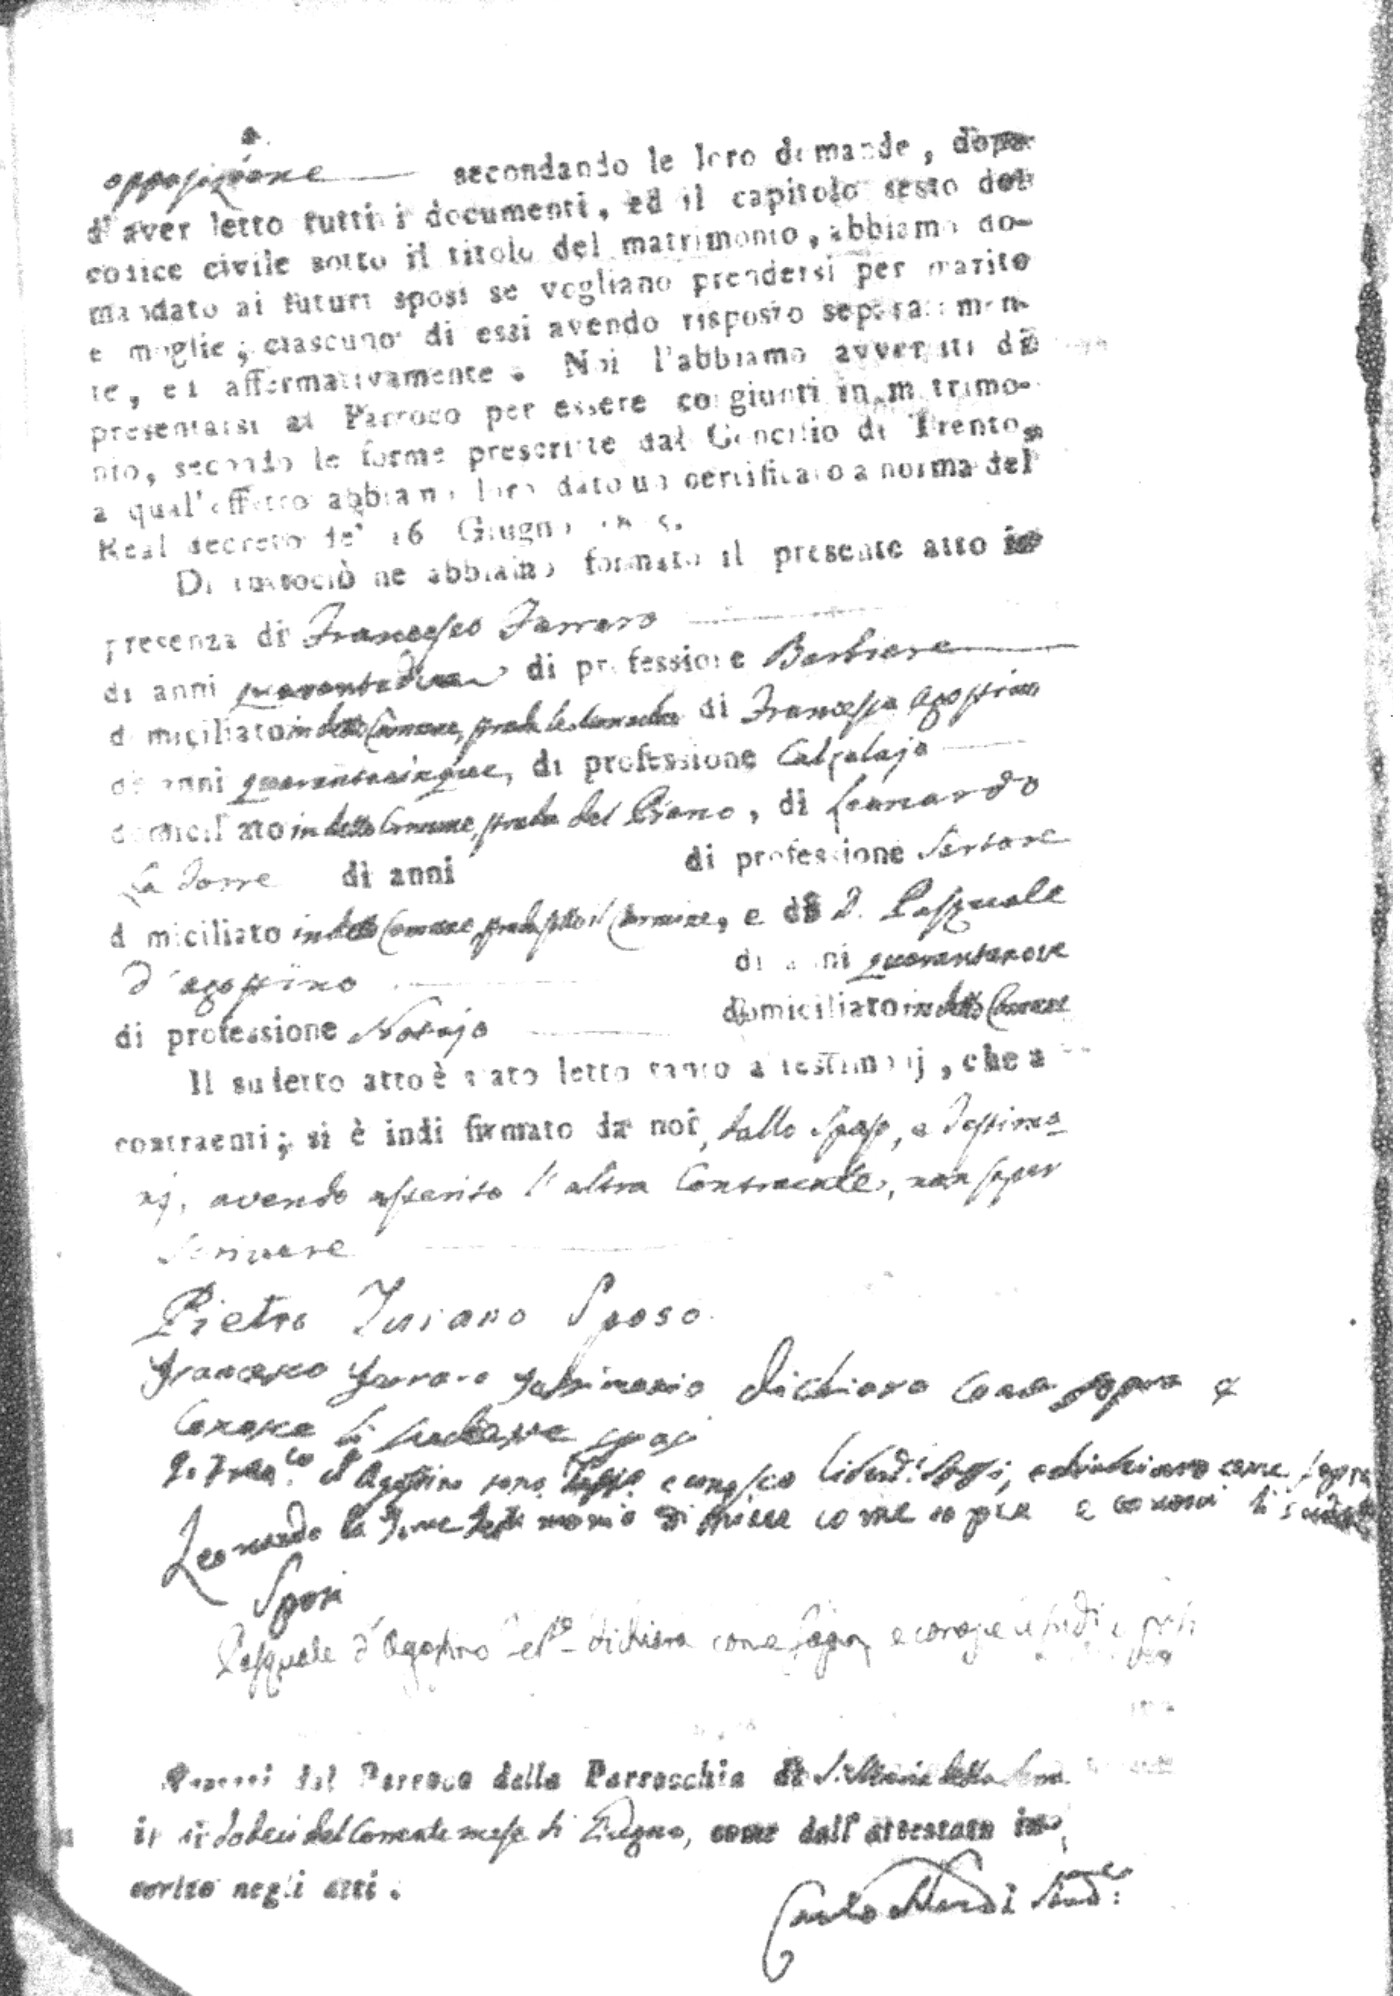 opposizione secondando le loro domande, dopo
d'aver letto tutti i documenti, ed il capitolo sesto del
codice civile sotto il titolo del matrimonio, abbiamo do-
mandato ai futuri sposi se vogliano prendersi per marito
e moglie; ciascuno di essi avendo risposto separatamen-
te, ed affermativamente. Noi l'abbiamo avvertiti di
presentarsi al Parroco per essere congiunti in matrimo-
nio, secondo le forme prescritte dal Concilio di Trento,
a qual'effetto abbiamo loro dato un certificato a norma del
Real decreto de' 16 Giugno
Di tuttociò ne abbiamo formato il presente atto in
presenza di Francesco Ferraro
di anni di professione Barbiere
domiciliato in detto Comune, strada di Francesco Agostino
di anni quarantacinque, di professione Calzolajo
domiciliato in detto Comune, strada del Piano, di Leonardo
La Torre di anni di professione Sartore
domiciliato in detto Comune, strada sotto il Carmine, e di D. Pasquale
d'agostino di anni quarantanove
di professione Notajo domiciliato in detto Comune
Il sudetto atto è stato letto tanto a testimonj, che a
contraenti; si è indi firmato da noi, dallo Sposo, e Testimo-
nj, avendo asserito l'altra Contraente, non saper
Scrivere
Pietro Sposo
Francesco Ferraro testimonio dichiaro come sopra e
Conosco li sposi
d'Agostino sono Testi.o e conosco li sud.i Sposi, e dichiaro come sopra
Leonardo la Torre testimonio come sopra e li
Sposi
Pasquale d'Agostino dichiara come sopra, e conosce
dal Parroco della Parrocchia di S. Maria della
dodeci del Corrente mese di Giugno, come dall'attestato in-
serito negli atti.
Carlo Sind: